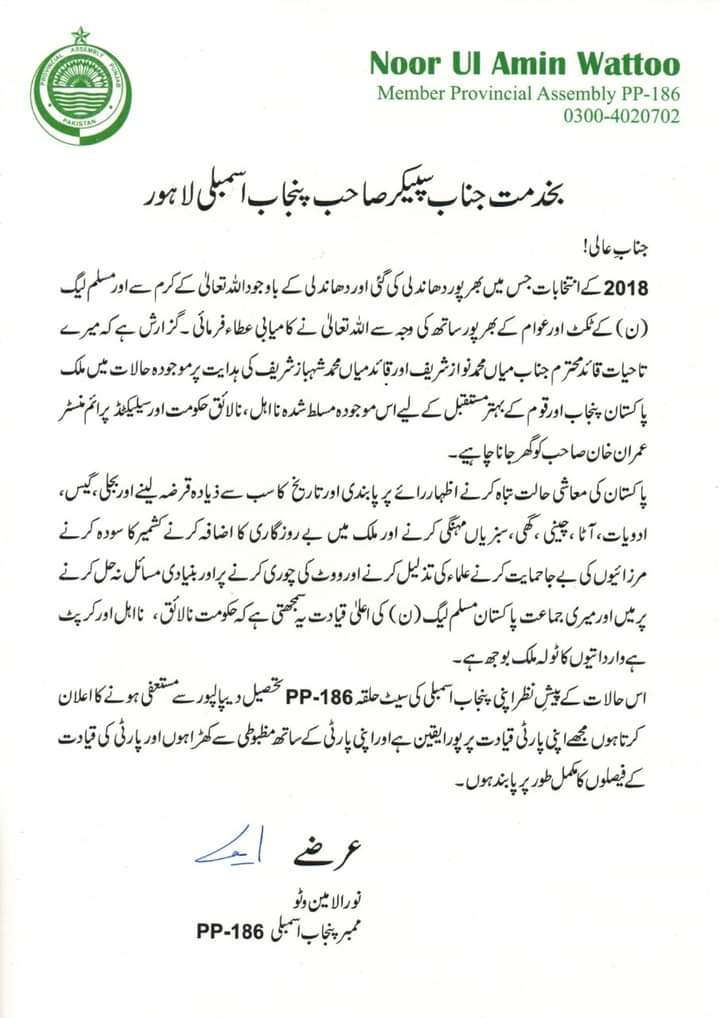 PROVINCIAL ASSEMBLY PUNJAB
PAKISTAN
Noor Ul Amin Wattoo
Member Provincial Assembly PP-186
0300-4020702
بخدمت جناب سپیکر صاحب پنجاب اسمبلی لاہور
جناب عالی!
2018 کے انتخابات جس میں بھرپور دھاندلی کی گئی اور دھاندلی کے باوجود اللہ تعالیٰ کے کرم سے اور مسلم لیگ
(ن) کے ٹکٹ اور عوام کے بھرپور ساتھ کی وجہ سے اللہ تعالیٰ نے کامیابی عطاء فرمائی۔ گزارش ہے کہ میرے
تاحیات قائد محترم جناب میاں محمد نواز شریف اور قائد میاں محمد شہباز شریف کی ہدایت پر موجودہ حالات میں ملک
پاکستان پنجاب اور قوم کے بہتر مستقبل کے لیے اس موجودہ مسلط شدہ نااہل، نالائق حکومت اور سیلیکٹڈ پرائم منسٹر
عمران خان صاحب کو گھر جانا چاہیے۔
پاکستان کی معاشی حالت تباہ کرنے اظہار رائے پر پابندی اور تاریخ کا سب سے ذیادہ قرضہ لینے اور بجلی، گیس،
ادویات، آٹا، چینی، گھی، سبزیاں مہنگی کرنے اور ملک میں بے روزگاری کا اضافہ کرنے کشمیر کا سودہ کرنے
مرزائیوں کی بے جا حمایت کرنے علماء کی تذلیل کرنے اور ووٹ کی چوری کرنے پر اور بنیادی مسائل نہ حل کرنے
پر میں اور میری جماعت پاکستان مسلم لیگ (ن) کی اعلیٰ قیادت یہ سمجھتی ہے کہ حکومت نالائق، نااہل اور کرپٹ
ہے وارداتیوں کا ٹولہ ملک بوجھ ہے۔
اس حالات کے پیشِ نظر اپنی پنجاب اسمبلی کی سیٹ حلقہ PP-186 تحصیل دیپالپور سے مستعفی ہونے کا اعلان
کرتا ہوں مجھے اپنی پارٹی قیادت پر پورا یقین ہے اور اپنی پارٹی کے ساتھ مظبوطی سے کھڑا ہوں اور پارٹی کی قیادت
کے فیصلوں کا مکمل طور پر پابند ہوں۔
عرضے
نورالامین وٹو
ممبر پنجاب اسمبلی PP-186